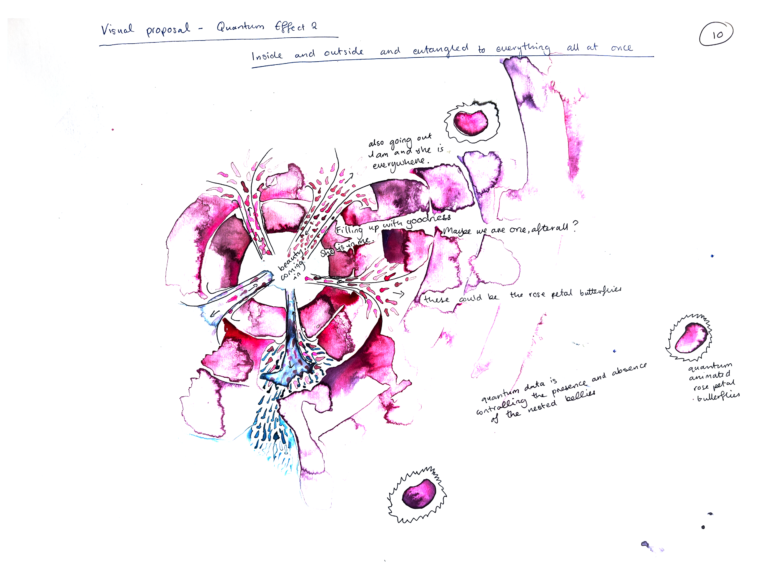 Visual proposal - Quantum Effect 2
10
Inside and outside and entangled to everything all at once
also going out
I am and she is
everywhere.
Filling up with goodness
Maybe we are one, afterall?
She is in me.
beauty
coming
in
these could be the rose petal butterflies
quantum data is
controlling the presence and absence
of the nested bellies
quantum
animated
rose petal
butterflies